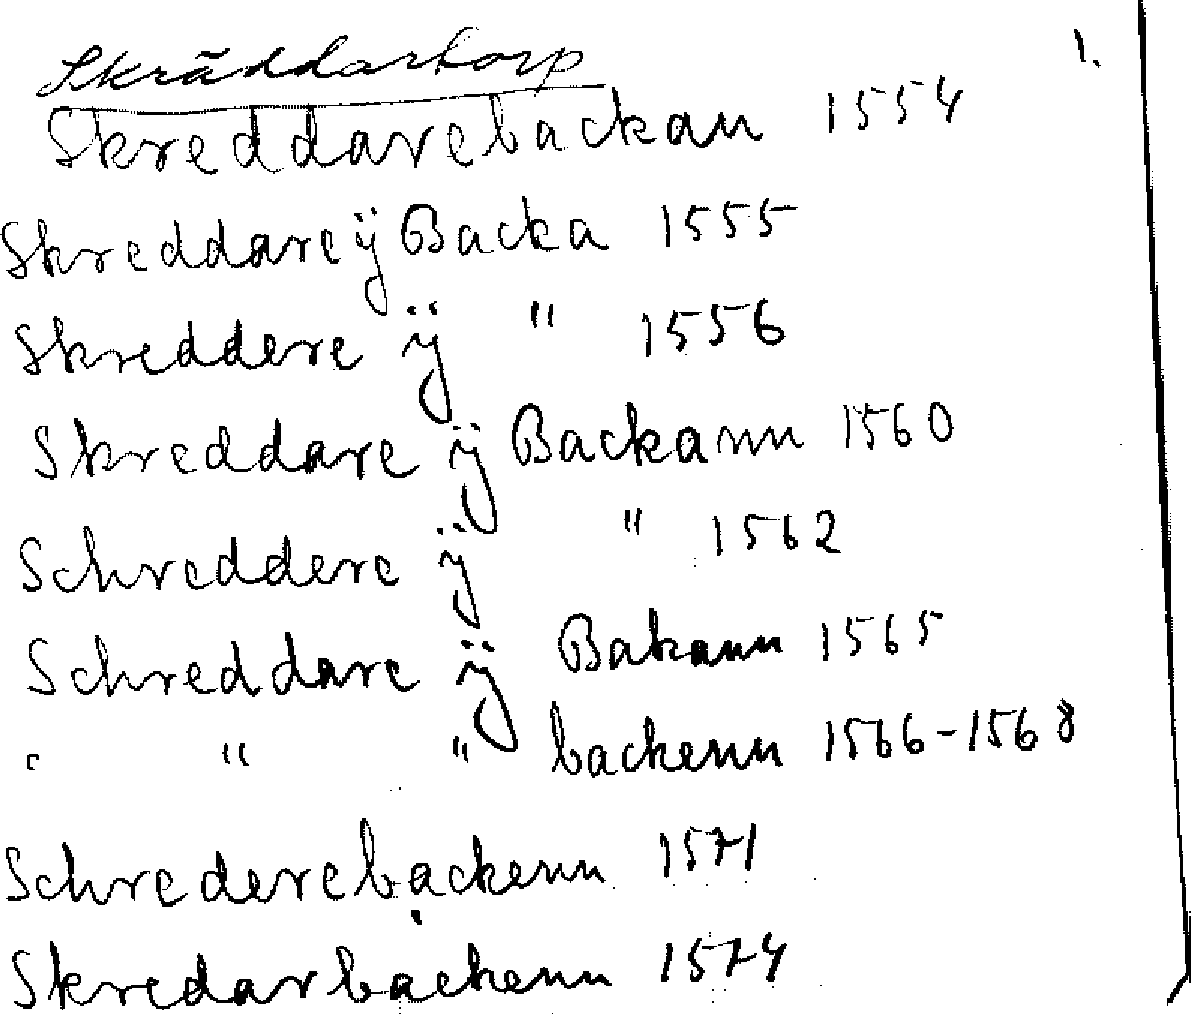 Skräddartorp 1.
Skreddarebackan 1554
Skreddare ÿ Backa 1555
Skreddere ÿ " 1556
Skreddare ÿ Backann 1560
Schreddere ÿ " 1562
Schreddare ÿ Bakann 1565
" " " backenn 1566-1568
Schrederebackenn 1571
Skredarbackenn 1574